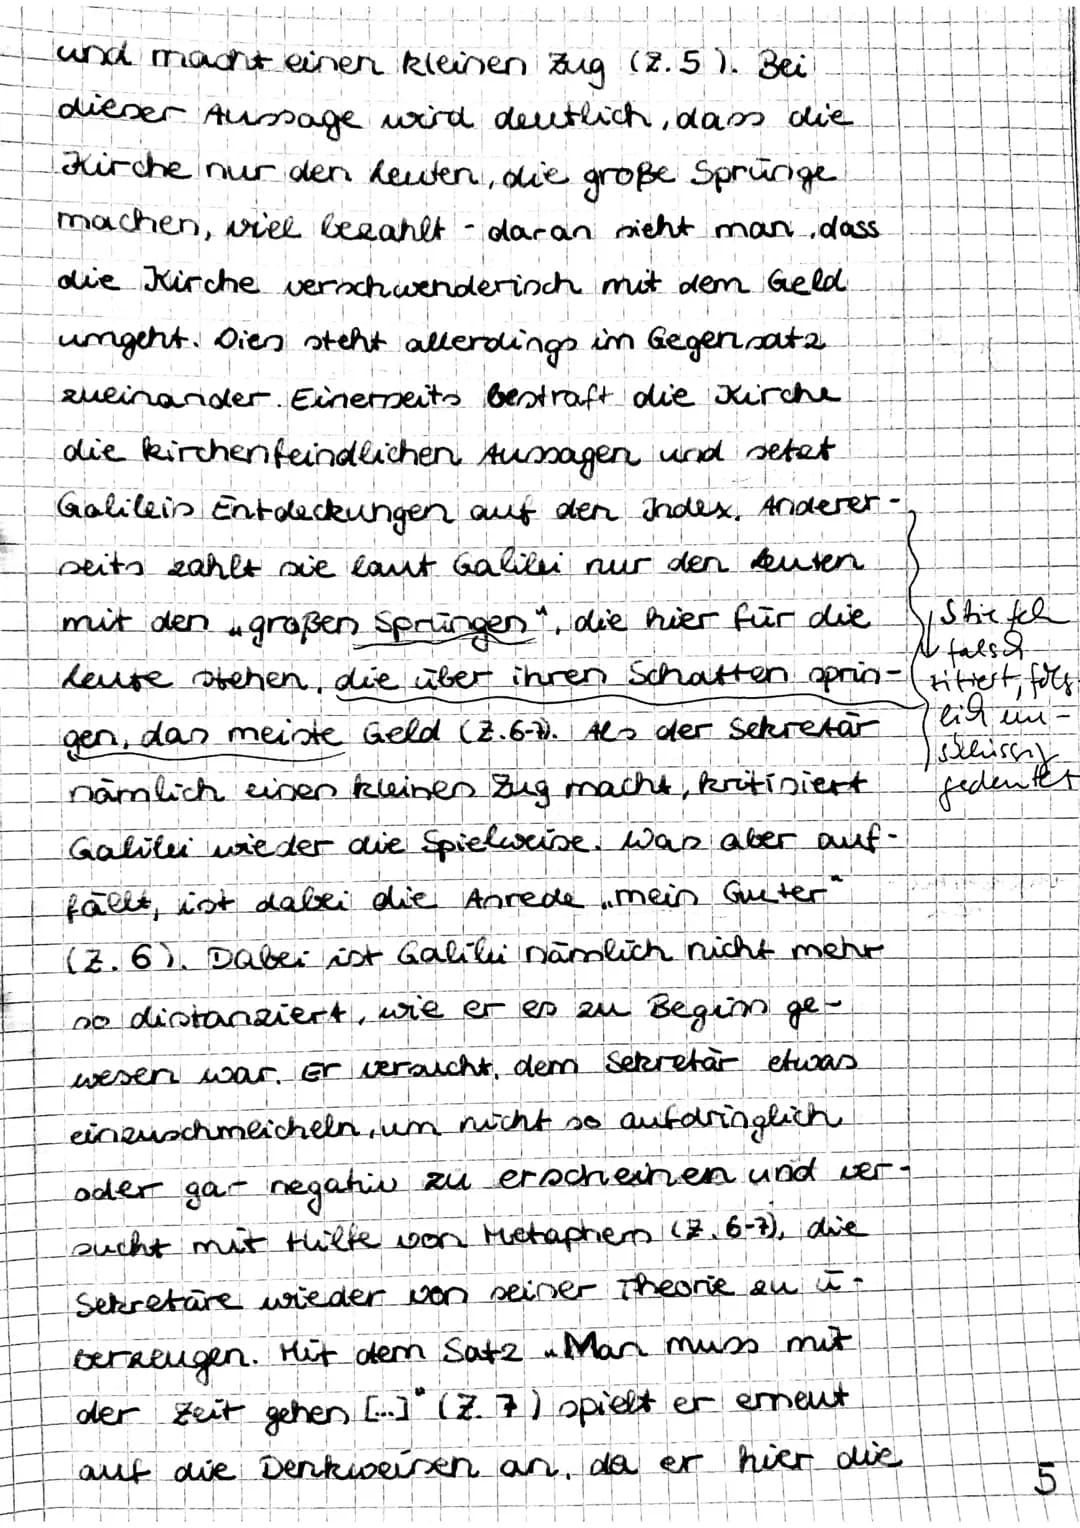 und macht einen kleinen Zug (Z.5). Bei
dieser Aussage wird deutlich, dass die
Kirche nur den Leuten, die große Sprünge
machen, viel bezahlt - daran sieht man, dass
die Kirche verschwenderisch mit dem Geld
umgeht. Dies steht allerdings im Gegensatz
zueinander. Einerseits bestraft die Kirche
die kirchenfeindlichen Aussagen und setzt
Galileis Entdeckungen auf den Index. Anderer-
seits zahlt sie laut Galilei nur den Leuten
mit den „großen Sprüngen“, die hier für die
Leute stehen, die über ihren Schatten sprin-
gen, das meiste Geld (Z.6-7). Als der Sekretär
nämlich einen kleinen Zug macht, kritisiert
Galilei wieder die Spielweise. Was aber auf-
fällt, ist dabei die Anrede „mein Guter“
(Z. 6). Dabei ist Galilei nämlich nicht mehr
so distanziert, wie er es zu Beginn ge-
wesen war. Er versucht, dem Sekretär etwas
einzuschmeicheln, um nicht so aufdringlich
oder gar negativ zu erscheinen und ver-
sucht mit Hilfe von Metaphern (Z. 6-7), die
Sekretäre wieder von seiner Theorie zu ü-
berzeugen. Mit dem Satz „Man muss mit
der Zeit gehen [...]“ (Z. 7) spielt er erneut
auf die Denkweisen an, da er hier die
falsch
zitiert, folg-
lich un-
schlüssig
gedeutet
5